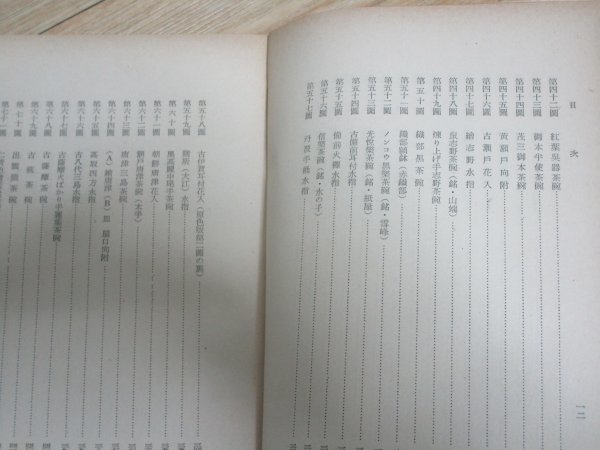 目次
第四十二圖 紅葉呉器茶碗
第四十三圖 御本半使茶碗
第四十四圖 茂三御本茶碗
第四十五圖 黄瀬戸向附
第四十六圖 古瀬戸花入
第四十七圖 繪志野水指
第四十八圖 鼠志野茶碗（銘・山端）
第四十九圖 練り上げ手志野茶碗
第五十圖 織部黒茶碗
第五十一圖 織部鷄鉢（赤織部）
第五十二圖 ノンコウ黒樂茶碗（銘・雪峰）
第五十三圖 光悦樂茶碗（銘・紙屋）
第五十四圖 古備前耳付水指
第五十五圖 備前火襷水指
第五十六圖 信樂茶碗（銘・水の子）
第五十七圖 丹波手桶水指
一二
第五十八圖 古伊賀耳付花入（原色版第二圖の裏）
第五十九圖 膳所（大江）水指
第六十圖 黒高麗
第六十一圖 朝鮮唐津花入
第六十二圖 瀬戸唐津茶碗（本手）
第六十三圖 唐津三島茶碗
第六十四圖 （A）繪唐津（B）
第六十五圖 高取四方水指
第六十六圖 古八代三島水指
第六十七圖 古薩摩火ばかり手茶碗
第六十八圖 古薩摩茶碗
第六十九圖 古萩茶碗
第七十圖 出雲茶碗
第七十一圖